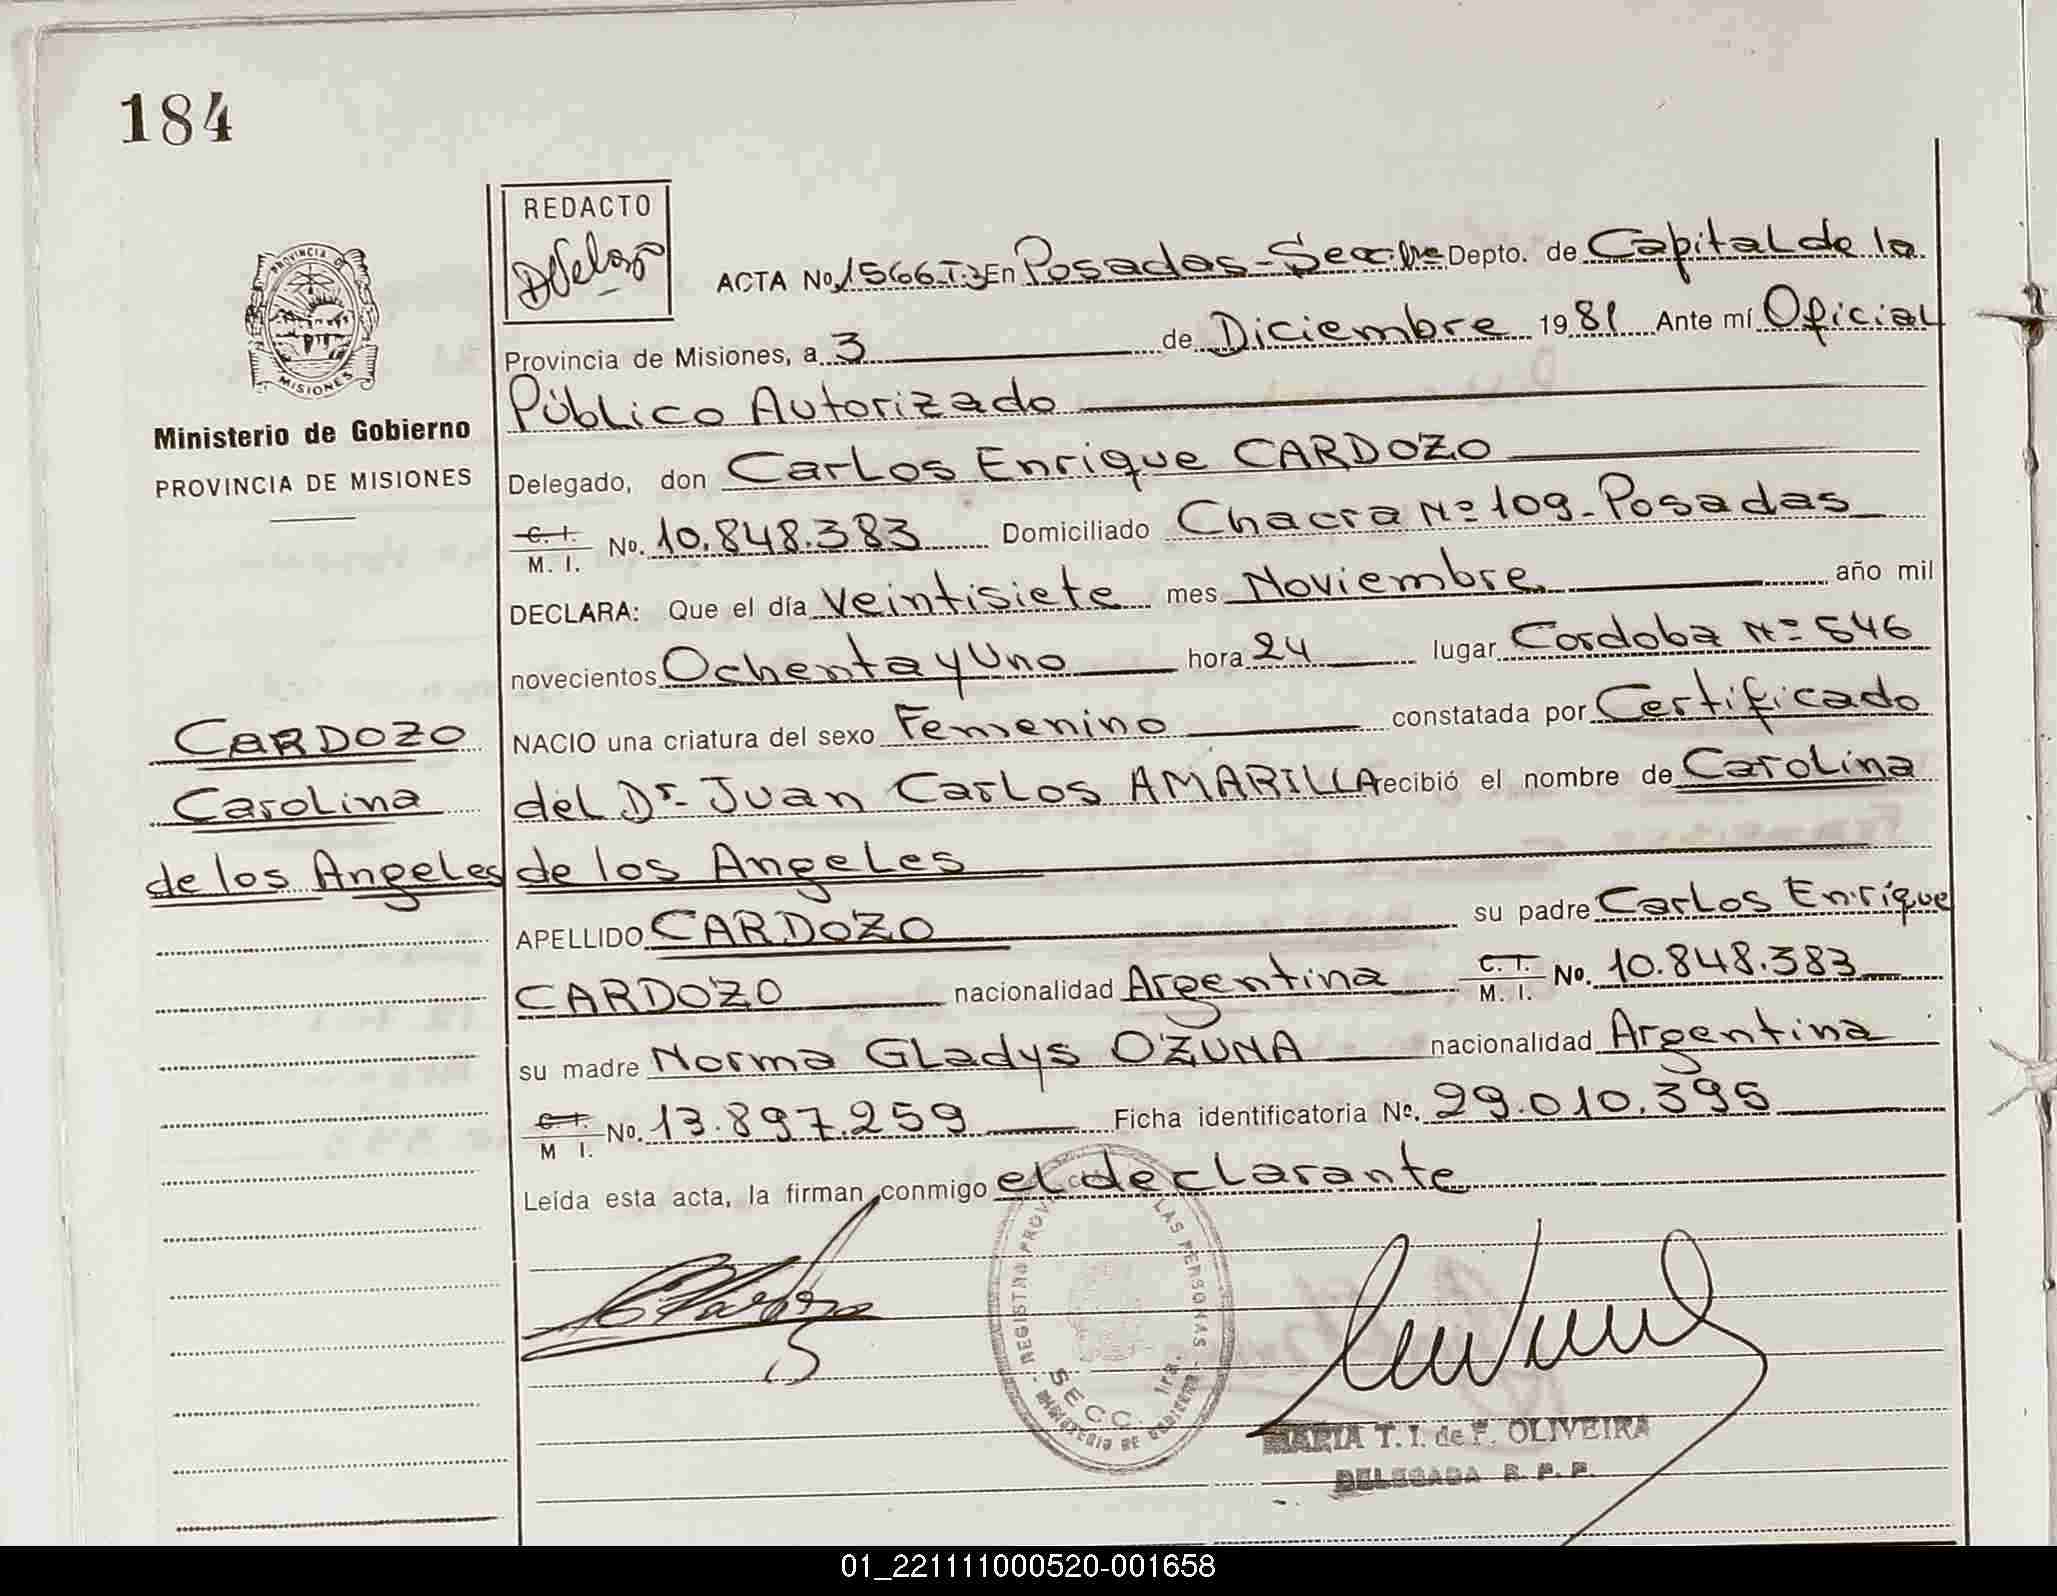 184
REDACTO
PROVINCIA DE
MISIONES
ACTA No 1566-T-3 En Posadas - Secc. 1ra Depto. de Capital de la
Provincia de Misiones, a 3 de Diciembre 1981 Ante mí Oficial
Público Autorizado
Ministerio de Gobierno
PROVINCIA DE MISIONES
Delegado, don Carlos Enrique CARDOZO
C. I. M. I. No. 10.848.383 Domiciliado Chacra Nº 109 - Posadas
DECLARA: Que el día veintisiete mes Noviembre año mil
novecientos Ochenta y Uno hora 24 lugar Cordoba Nº 546
CARDOZO
Carolina
de los Angeles
NACIO una criatura del sexo Femenino constatada por Certificado
del Dr. Juan Carlos AMARILLA recibió el nombre de Carolina
de los Angeles
APELLIDO CARDOZO su padre Carlos Enrique
CARDOZO nacionalidad Argentina C. I. M. I. No. 10.848.383
su madre Norma Gladys OZUNA nacionalidad Argentina
C. I. M I. No. 13.897.259 Ficha identificatoria No. 29.010.395
Leída esta acta, la firman conmigo el declarante
REGISTRO PROV LAS PERSONAS
SECC. 1ra.
MINISTERIO DE GOBIERNO
MARIA T. I. de F. OLIVEIRA
DELEGADA R. P. P.
01_221111000520-001658